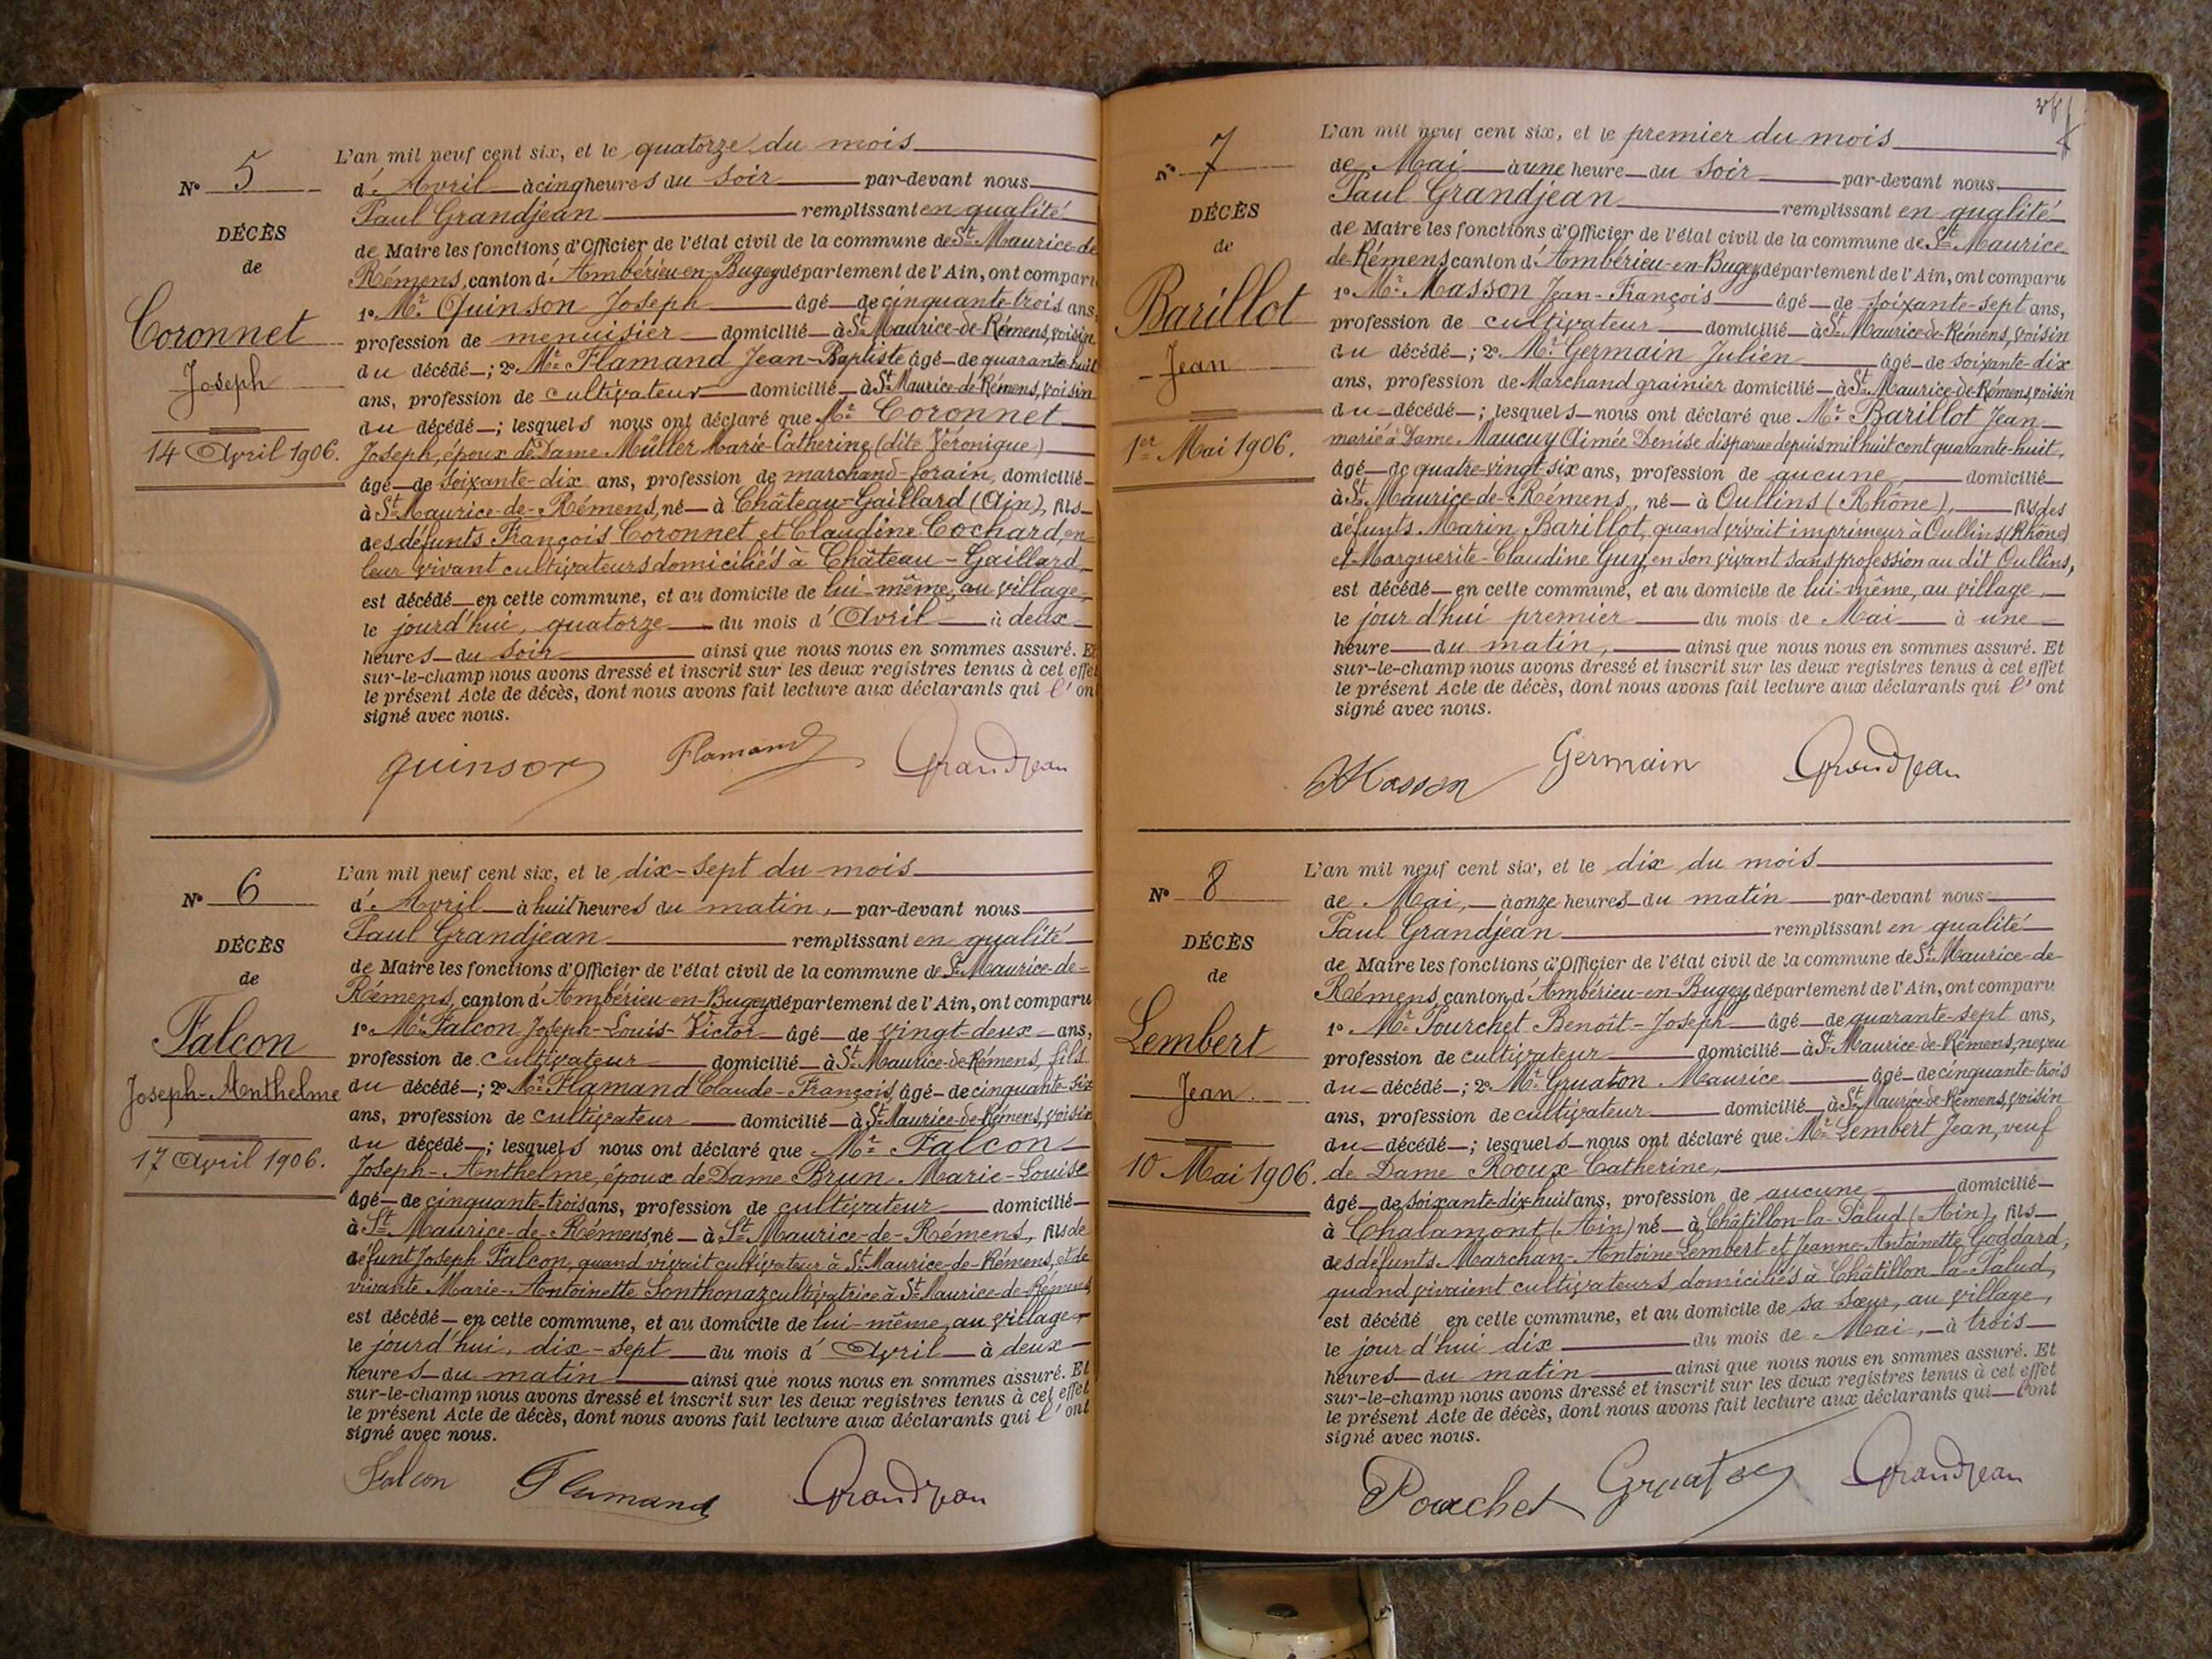 N° 5
DÉCÈS
de
Coronnet
Joseph
14 Avril 1906.
L'an mil neuf cent six, et le quatorze du mois
d'Avril à cinq heures du soir par-devant nous
Paul Grandjean remplissant en qualité
de Maire les fonctions d'Officier de l'état civil de la commune de St Maurice-de
Rémens, canton d'Ambérieu-en-Bugey département de l'Ain, ont comparu
1° Mr Quinson Joseph âgé de cinquante-trois ans,
profession de menuisier domicilié à St Maurice-de-Rémens, voisin
du décédé ; 2° Mr Flamand Jean-Baptiste âgé de quarante-huit
ans, profession de cultivateur domicilié à St Maurice-de-Rémens, voisin
du décédé ; lesquels nous ont déclaré que Mr Coronnet
Joseph, époux de Dame Müller Marie-Catherine (dite Véronique)
âgé de soixante-dix ans, profession de marchand-forain, domicilié
à St Maurice-de-Rémens, né à Château-Gaillard (Ain), fils
des défunts François Coronnet et Claudine Cochard, en
leur vivant cultivateurs domiciliés à Château-Gaillard,
est décédé en cette commune, et au domicile de lui-même, au village,
le jourd'hui, quatorze du mois d'Avril à deux
heures du soir ainsi que nous nous en sommes assuré. Et
sur-le-champ nous avons dressé et inscrit sur les deux registres tenus à cet effet
le présent Acte de décès, dont nous avons fait lecture aux déclarants qui l'ont
signé avec nous.
quinson Flamand Grandjean
N° 6
DÉCÈS
de
Falcon
Joseph-Anthelme
17 Avril 1906.
L'an mil neuf cent six, et le dix-sept du mois
d'Avril à huit heures du matin, par-devant nous
Paul Grandjean remplissant en qualité
de Maire les fonctions d'Officier de l'état civil de la commune de St Maurice-de-
Rémens, canton d'Ambérieu-en-Bugey département de l'Ain, ont comparu
1° Mr Falcon Joseph-Louis-Victor âgé de vingt-deux ans,
profession de cultivateur domicilié à St Maurice-de-Rémens, fils
du décédé ; 2° Mr Flamand Claude-François, âgé de cinquante-six
ans, profession de cultivateur domicilié à St Maurice-de-Rémens, voisin
du décédé ; lesquels nous ont déclaré que Mr Falcon
Joseph-Anthelme, époux de Dame Brun Marie-Louise
âgé de cinquante-trois ans, profession de cultivateur domicilié
à St Maurice-de-Rémens, né à St Maurice-de-Rémens, fils de
défunt Joseph Falcon, quand vivait cultivateur à St Maurice-de-Rémens, et de
vivante Marie-Antoinette Sonthonaz cultivatrice à St Maurice-de-Rémens
est décédé en cette commune, et au domicile de lui-même, au village
le jourd'hui, dix-sept du mois d'Avril à deux
heures du matin ainsi que nous nous en sommes assuré. Et
sur-le-champ nous avons dressé et inscrit sur les deux registres tenus à cet effet
le présent Acte de décès, dont nous avons fait lecture aux déclarants qui l'ont
signé avec nous.
Falcon Flamand Grandjean
N° 7
DÉCÈS
de
Barillot
Jean
1er Mai 1906.
L'an mil neuf cent six, et le premier du mois
de Mai à une heure du soir par-devant nous
Paul Grandjean remplissant en qualité
de Maire les fonctions d'Officier de l'état civil de la commune de St Maurice
de-Rémens canton d'Ambérieu-en-Bugey département de l'Ain, ont comparu
1° Mr Masson Jean-François âgé de soixante-sept ans,
profession de cultivateur domicilié à St Maurice-de-Rémens, voisin
du décédé ; 2° Mr Germain Julien âgé de soixante-dix
ans, profession de Marchand grainier domicilié à St Maurice-de-Rémens, voisin
du décédé ; lesquels nous ont déclaré que Mr Barillot Jean
marié à Dame Maucuy Aimée Denise disparue depuis mil huit cent quarante-huit,
âgé de quatre-vingt-six ans, profession de aucune domicilié
à St Maurice-de-Rémens, né à Oullins (Rhône), fils des
défunts Marin Barillot, quand vivait imprimeur à Oullins (Rhône)
et Marguerite-Claudine Guy en son vivant sans profession au dit Oullins,
est décédé en cette commune, et au domicile de lui-même, au village,
le jour d'hui premier du mois de Mai à une
heure du matin, ainsi que nous nous en sommes assuré. Et
sur-le-champ nous avons dressé et inscrit sur les deux registres tenus à cet effet
le présent Acte de décès, dont nous avons fait lecture aux déclarants qui l'ont
signé avec nous.
Masson Germain Grandjean
N° 8
DÉCÈS
de
Lembert
Jean
10 Mai 1906.
L'an mil neuf cent six, et le dix du mois
de Mai, à onze heures du matin par-devant nous
Paul Grandjean remplissant en qualité
de Maire les fonctions d'Officier de l'état civil de la commune de St Maurice-de-
Rémens, canton d'Ambérieu-en-Bugey, département de l'Ain, ont comparu
1° Mr Pourchet Benoît-Joseph âgé de quarante-sept ans,
profession de cultivateur domicilié à St Maurice-de-Rémens, neveu
du décédé ; 2° Mr Gruaton Maurice âgé de cinquante-trois
ans, profession de cultivateur domicilié à St Maurice-de-Rémens, voisin
du décédé ; lesquels nous ont déclaré que Mr Lembert Jean, veuf
de Dame Roux Catherine,
âgé de soixante-dix-huit ans, profession de aucune domicilié
à Chalamont (Ain) né à Châtillon-la-Palud (Ain), fils
des défunts Marchan-Antoine Lembert et Jeanne-Antoinette Goddard,
quand vivaient cultivateurs domiciliés à Châtillon-la-Palud,
est décédé en cette commune, et au domicile de sa sœur, au village,
le jour d'hui dix du mois de Mai, à trois
heures du matin ainsi que nous nous en sommes assuré. Et
sur-le-champ nous avons dressé et inscrit sur les deux registres tenus à cet effet
le présent Acte de décès, dont nous avons fait lecture aux déclarants qui l'ont
signé avec nous.
Pourchet Gruaton Grandjean